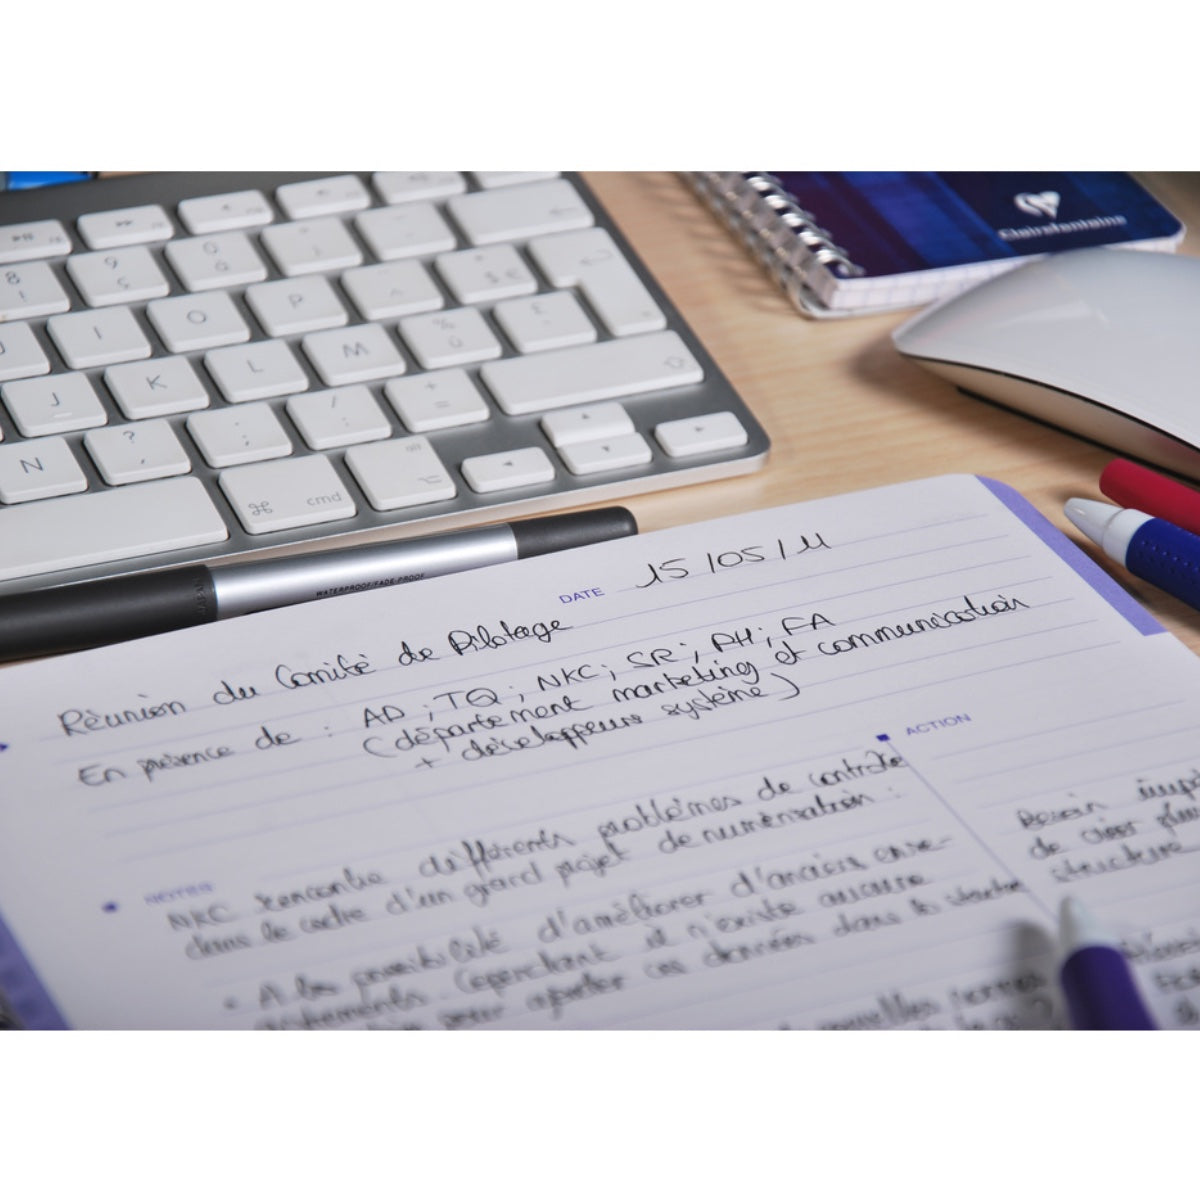 Clairefontaine
8
!
9
ç
0
à
)
°
-
_
*
$ €
I
O
P
^
J
K
L
M
%
ù
£
N
?
,
.
;
/
:
+
=
cmd
alt
WATERPROOF/FADE-PROOF
DATE 15/05/11
Réunion du Comité de Pilotage
En présence de : AD ; TQ ; NKC ; SR ; PH ; FA
(département marketing et communication
+ développeurs système)
NOTES
NKC rencontre différents problèmes de contrôle
dans le cadre d'un grand projet de numérisation :
• A la possibilité d'améliorer d'anciens enre-
gistrements. Cependant il n'existe aucune
pour ajouter ces données dans la structure
nouvelles normes
ACTION
Besoin
de créer
structure